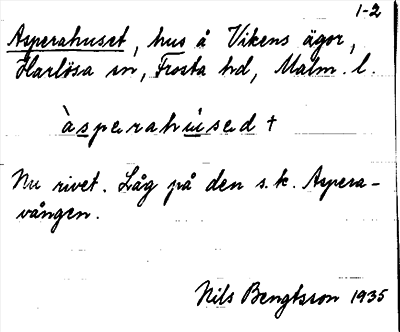 1-2
Asperahuset, hus å Vikens ägor,
Harlösa sn, Frosta hd, Malm. l.
àsperahúsed +
Nu rivet. Låg på den s.k. Aspera-
vången.
Nils Bengtsson 1935